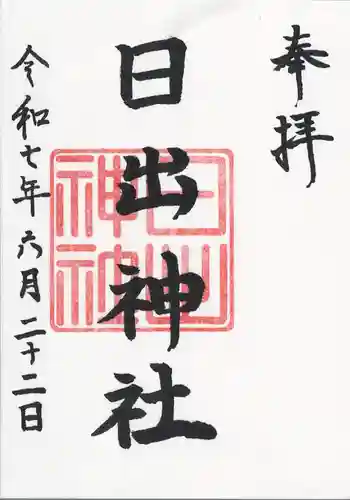 奉拝
日出神社
令和七年六月二十二日